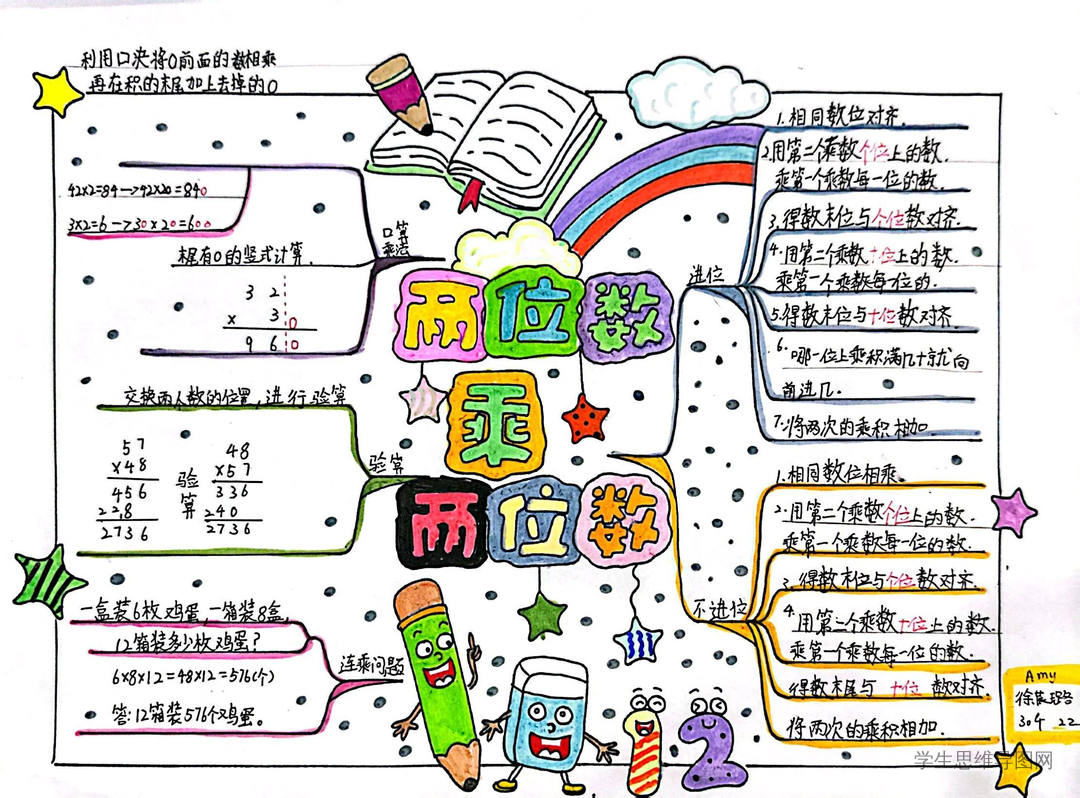 利用口决将0前面的数相乘
再在积的末尾加上去掉的0
42×2=84→42×20=840
3×2=6→30×20=600
口算
乘法
根有0的竖式计算.
3 2
× 3 0
9 6 0
交换两人数的位置,进行验算
验算
57
×48
456
228
2736
验
算
48
×57
336
240
2736
一盒装6枚鸡蛋,一箱装8盒,
12箱装多少枚鸡蛋?
连乘问题
6×8×12=48×12=576(个)
答:12箱装576个鸡蛋。
两位数
乘
两位数
进位
1.相同数位对齐.
2.用第二个乘数个位上的数.
乘第一个乘数每一位的数.
3.得数末位与个位数对齐.
4.用第二个乘数十位上的数.
乘第一个乘数每一位的.
5.得数末位与十位数对齐.
6.哪一位上乘积满几十就向
前进几.
7.将两次的乘积相加
不进位
1.相同数位相乘.
2.用第二个乘数个位上的数.
乘第一个乘数每一位的数.
3.得数末位与个位数对齐.
4.用第二个乘数十位上的数.
乘第一个乘数每一位的数.
得数末尾与十位数对齐.
将两次的乘积相加.
1 2
Amy
徐
304 22
学生思维导图网